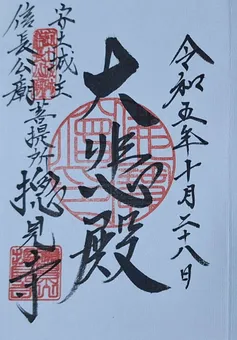 令和五年十月二十八日
大悲殿
安土城主
信長公廟菩提所
摠見寺